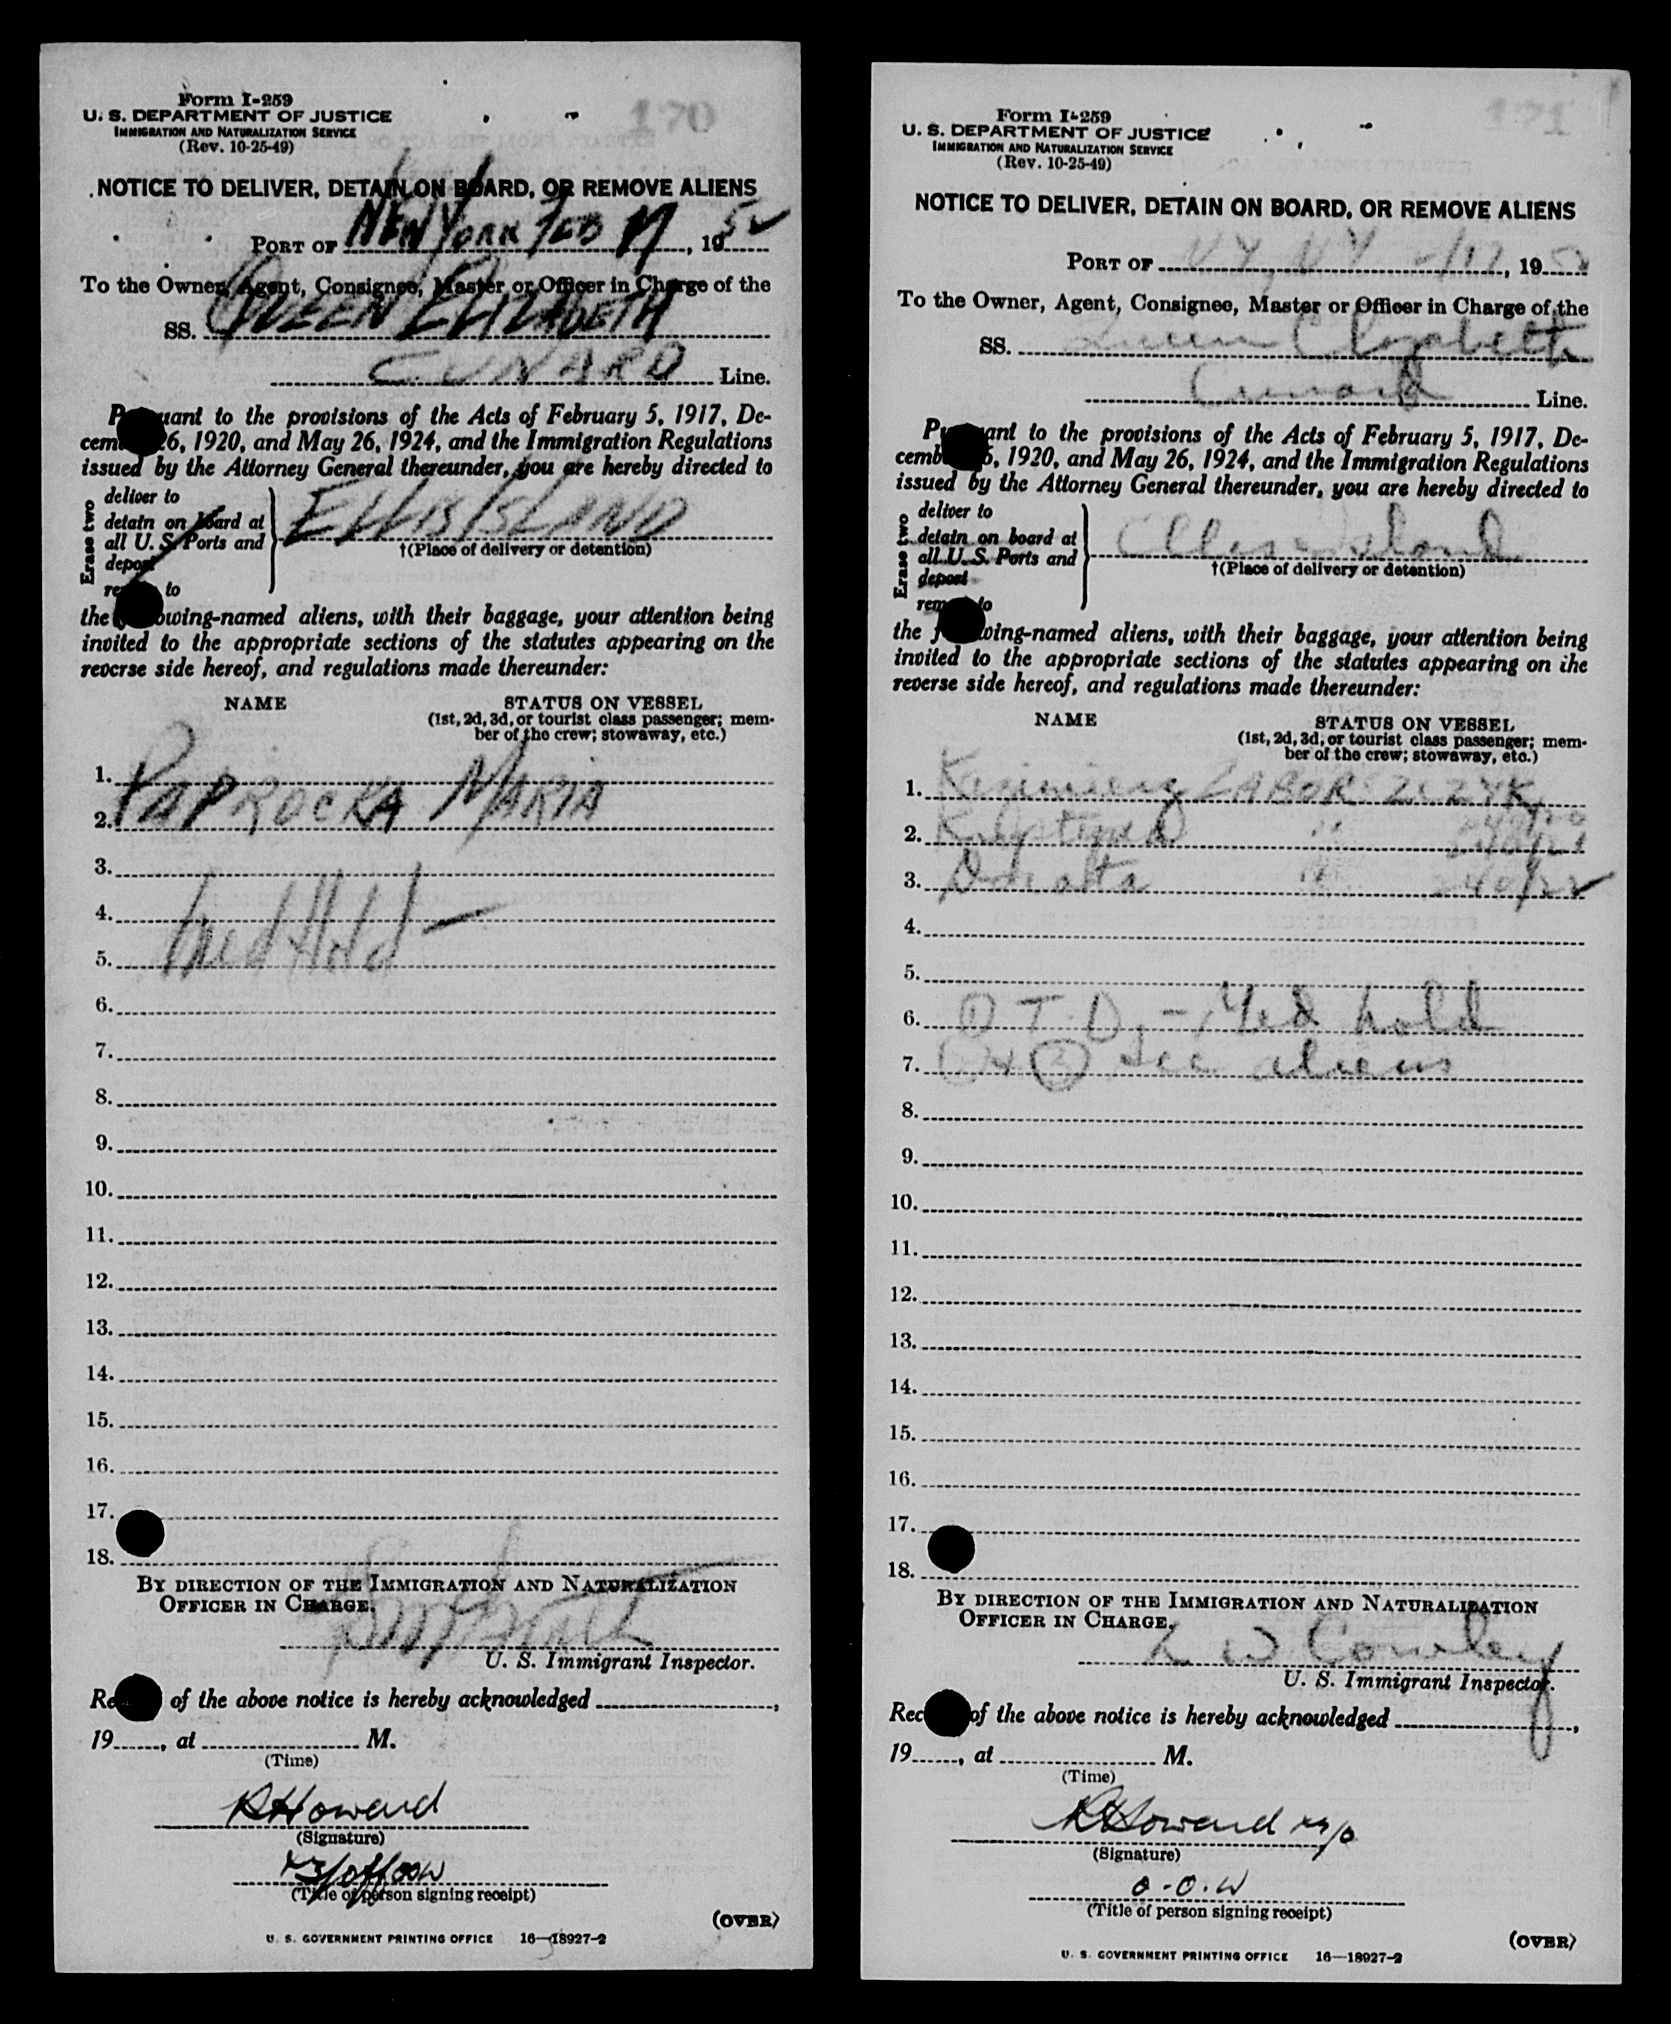 Form I-259
U. S. DEPARTMENT OF JUSTICE
IMMIGRATION AND NATURALIZATION SERVICE
(Rev. 10-25-49)
170
NOTICE TO DELIVER, DETAIN ON BOARD, OR REMOVE ALIENS
PORT OF NEW YORK FEB 17, 1952
To the Owner, Agent, Consignee, Master or Officer in Charge of the
SS. QUEEN ELIZABETH
CUNARD Line.
Pursuant to the provisions of the Acts of February 5, 1917, De-
cember 26, 1920, and May 26, 1924, and the Immigration Regulations
issued by the Attorney General thereunder, you are hereby directed to
Erase two
deliver to
detain on board at
all U. S. Ports and
deport
remove to
ELLIS ISLAND
†(Place of delivery or detention)
the following-named aliens, with their baggage, your attention being
invited to the appropriate sections of the statutes appearing on the
reverse side hereof, and regulations made thereunder:
NAME STATUS ON VESSEL
(1st, 2d, 3d, or tourist class passenger; mem-
ber of the crew; stowaway, etc.)
1.
2. PAPROCKA MARIA
3.
4.
5. Med Hold —
6.
7.
8.
9.
10.
11.
12.
13.
14.
15.
16.
17.
18.
BY DIRECTION OF THE IMMIGRATION AND NATURALIZATION
OFFICER IN CHARGE.
U. S. Immigrant Inspector.
Receipt of the above notice is hereby acknowledged ,
19 , at M.
(Time)
R Howard
(Signature)
(Title of person signing receipt)
(OVER)
U. S. GOVERNMENT PRINTING OFFICE 16—18927-2
Form I-259
U. S. DEPARTMENT OF JUSTICE
IMMIGRATION AND NATURALIZATION SERVICE
(Rev. 10-25-49)
171
NOTICE TO DELIVER, DETAIN ON BOARD, OR REMOVE ALIENS
PORT OF NY, NY 2/17, 1952
To the Owner, Agent, Consignee, Master or Officer in Charge of the
SS. Queen Elizabeth
Cunard Line.
Pursuant to the provisions of the Acts of February 5, 1917, De-
cember 26, 1920, and May 26, 1924, and the Immigration Regulations
issued by the Attorney General thereunder, you are hereby directed to
Erase two
deliver to
detain on board at
all U. S. Ports and
deport
remove to
Ellis Island
†(Place of delivery or detention)
the following-named aliens, with their baggage, your attention being
invited to the appropriate sections of the statutes appearing on the
reverse side hereof, and regulations made thereunder:
NAME STATUS ON VESSEL
(1st, 2d, 3d, or tourist class passenger; mem-
ber of the crew; stowaway, etc.)
1. Kazimierz LABOR
2. "
3. Danata " 240/22
4.
5.
6. ① T. D. - Med hold
7. ② + ③ Acc aliens
8.
9.
10.
11.
12.
13.
14.
15.
16.
17.
18.
BY DIRECTION OF THE IMMIGRATION AND NATURALIZATION
OFFICER IN CHARGE.
L W Cowley
U. S. Immigrant Inspector.
Receipt of the above notice is hereby acknowledged ,
19 , at M.
(Time)
R Howard
(Signature)
O.O.W
(Title of person signing receipt)
(OVER)
U. S. GOVERNMENT PRINTING OFFICE 16—18927-2